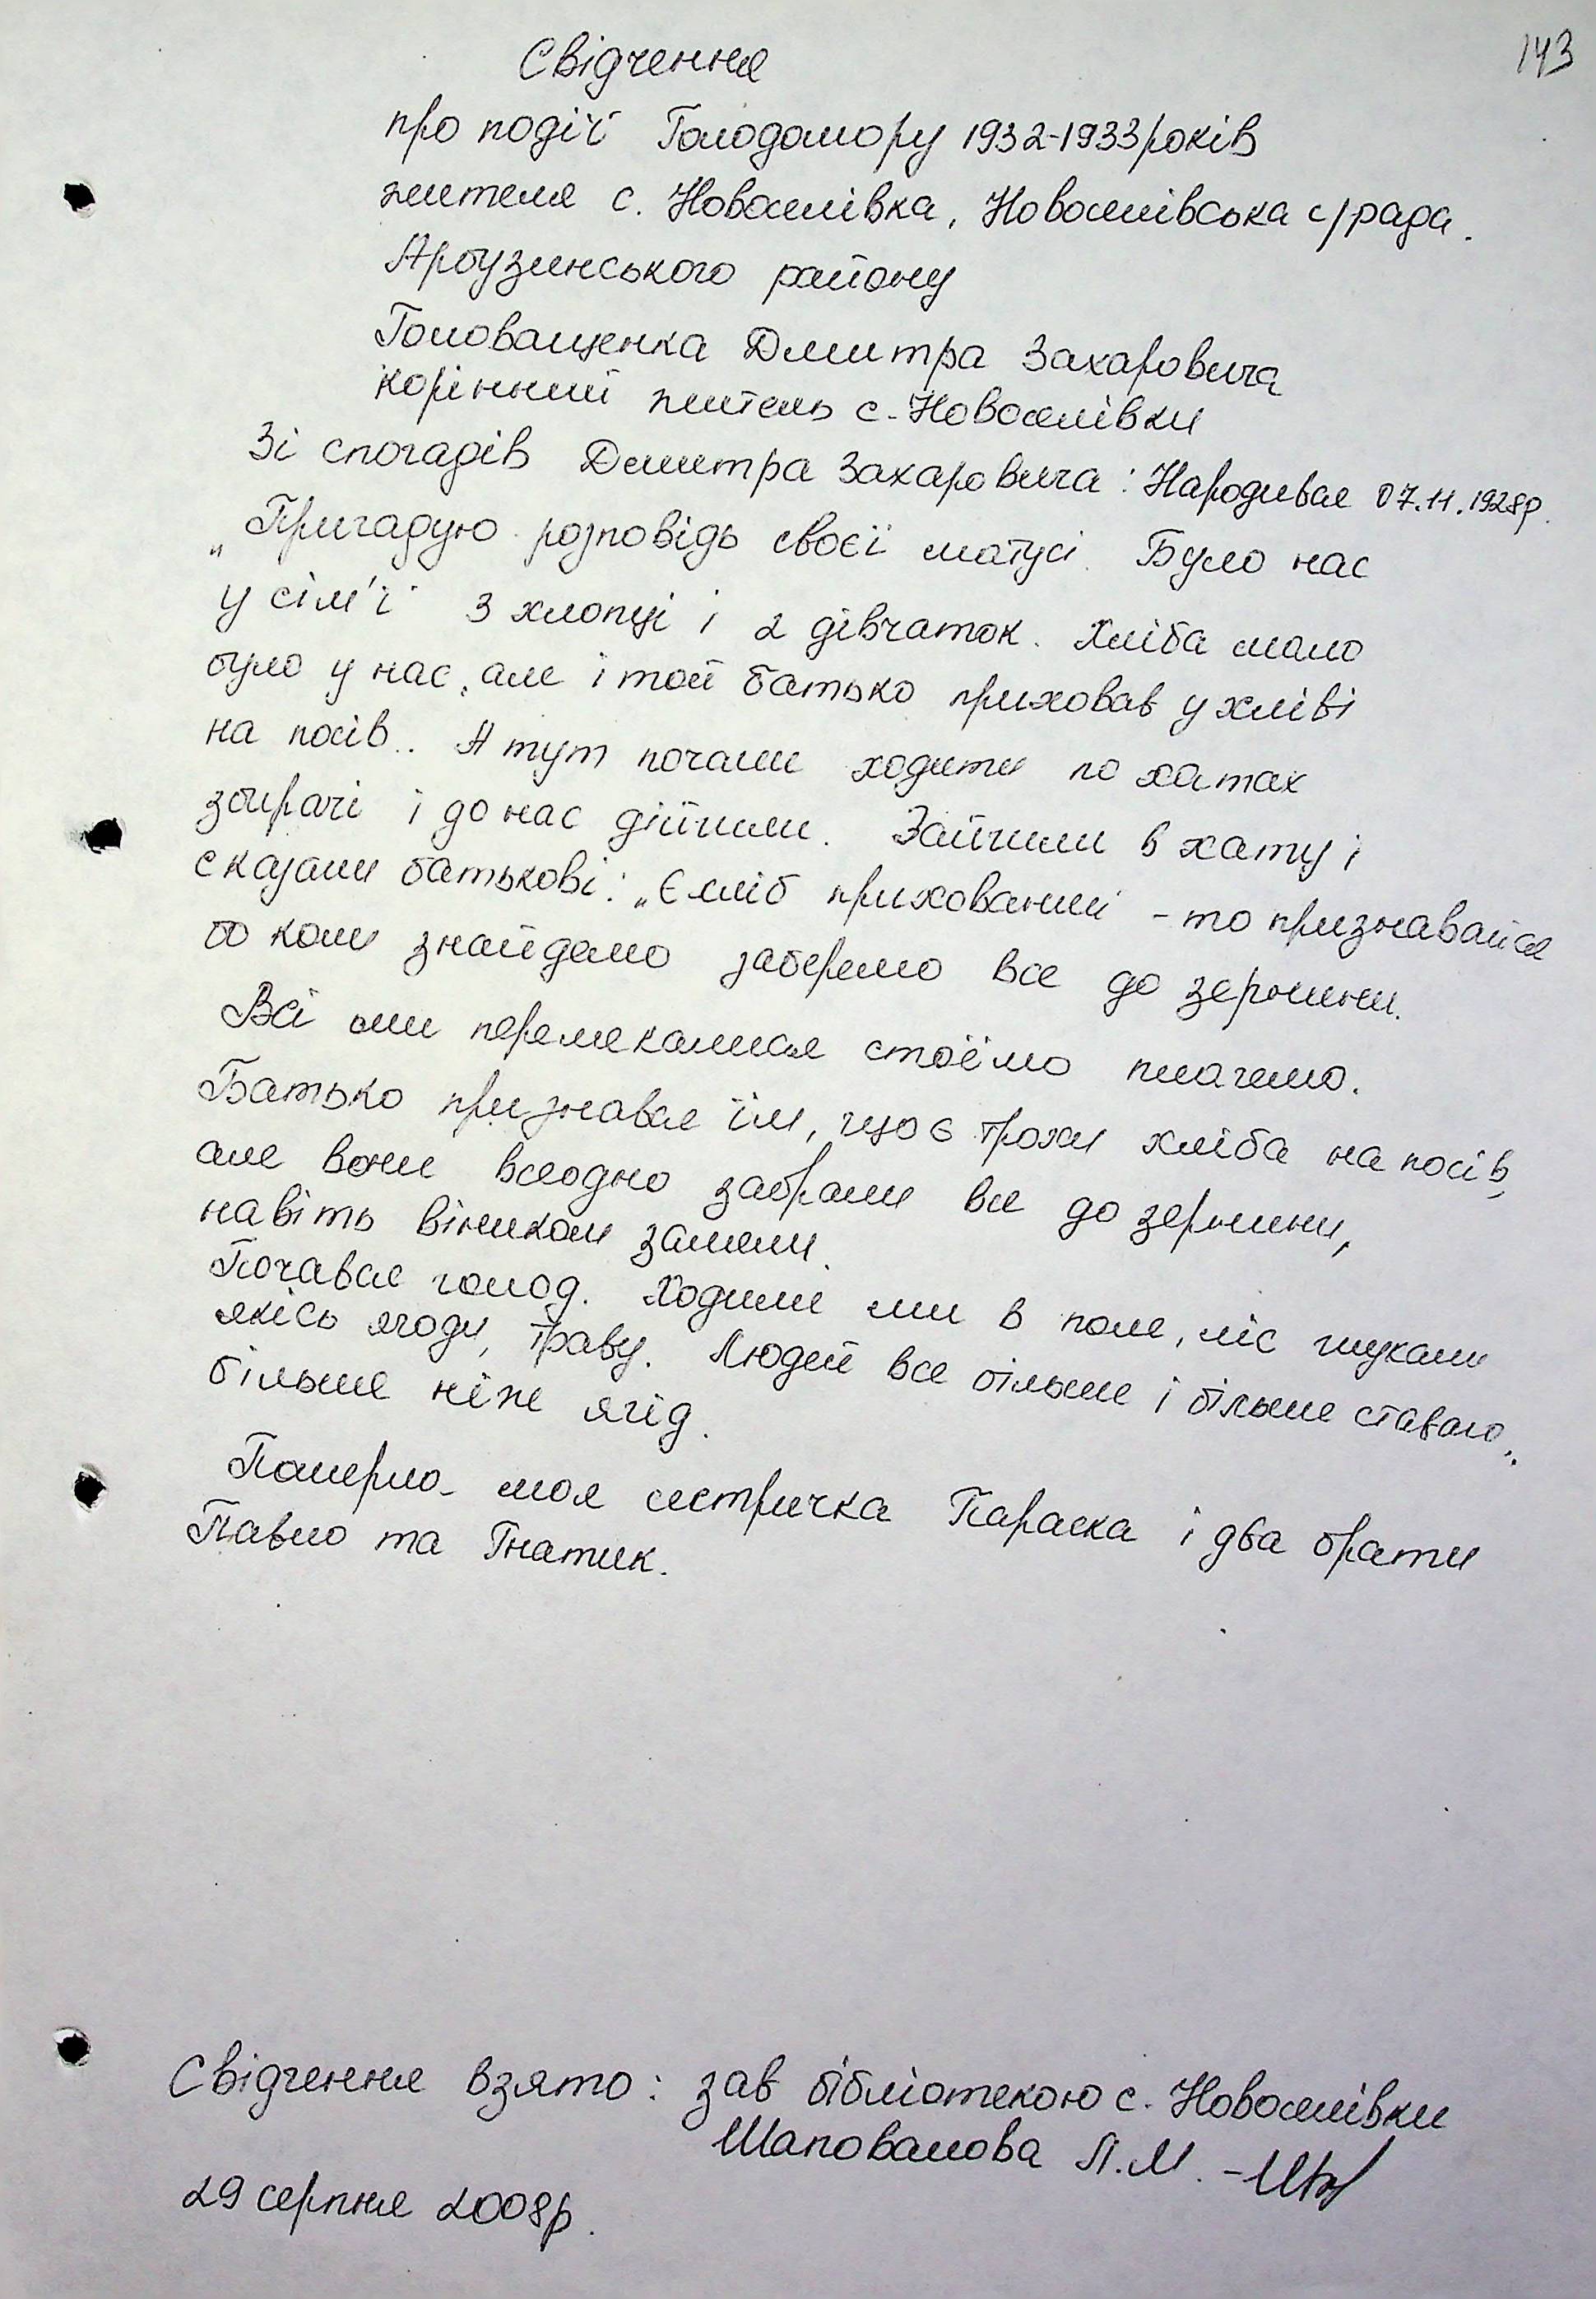 143
Свідчення
про події Голодомору 1932-1933 років
жителя с. Новоселівка, Новоселівська с/рада.
Арбузинського району
Головащенка Дмитра Захаровича
корінний житель с. Новоселівки
Зі спогадів Дмитра Захаровича: Народився 07.11.1928р.
„Пригадую розповідь своєї матусі. Було нас
у сім'ї 3 хлопці і 2 дівчаток. Хліба мало
було у нас, але і той батько приховав у хліві
на посів.. А тут почали ходити по хатах
збирачі і до нас дійшли. Зайшли в хату і
сказали батькові: „Є хліб прихований - то признавайся
бо коли знайдемо заберемо все до зернини.
Всі ми перелякалися стоїмо плачемо.
Батько признався їм, що є трохи хліба на посів,
але вони всеодно забрали все до зернини,
навіть віником замели.
Почався голод. Ходили ми в поле, ліс шукали
якісь ягоди, траву. Людей все більше і більше ставало..
більше ніж ягід.
Померло- моя сестричка Параска і два брати
Павло та Гнатик.
Свідчення взято: зав бібліотекою с. Новоселівки
Шаповалова Л.М. -
29 серпня 2008р.